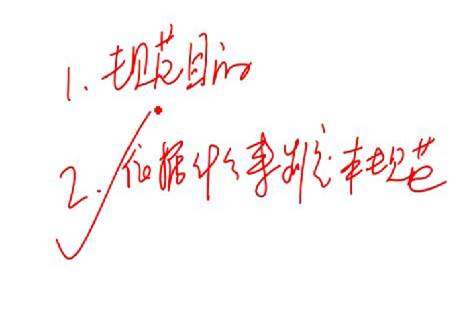 1、规范目的
2、依据什么事判定本规范